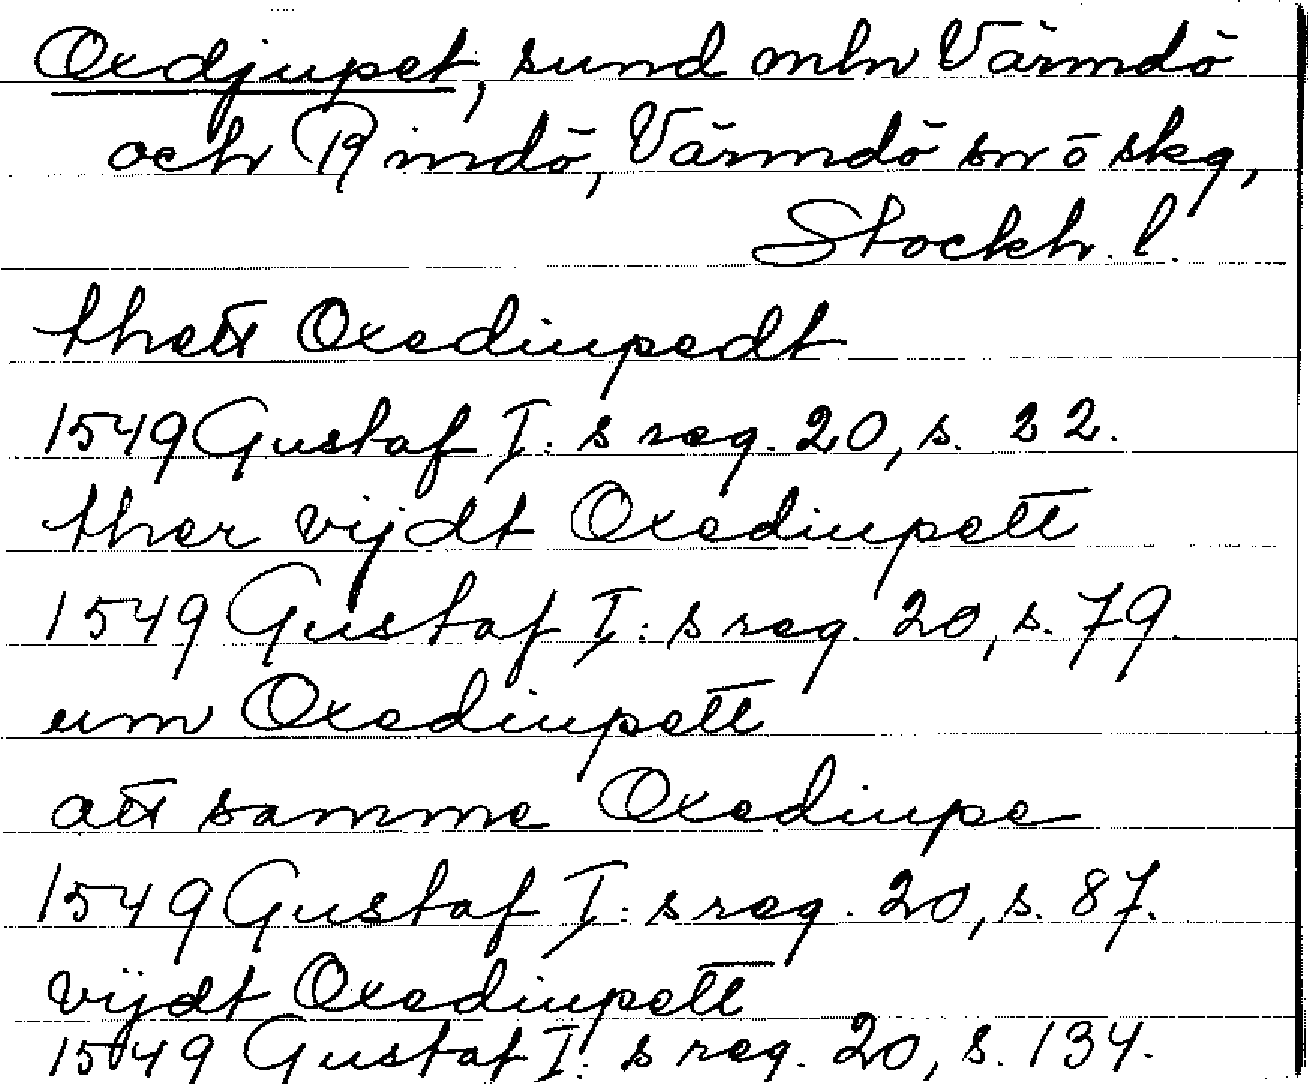 Oxdjupet, sund mln Värmdö
och Rindö, Värmdö sn ō skg,
Stockh. l.
thett Oxediupedt
1549 Gustaf I: s reg. 20, s. 22.
ther vijdt Oxediupett
1549 Gustaf I: s reg. 20, s. 79.
um Oxediupett
att samme Oxediupe
1549 Gustaf I: s reg. 20, s. 87.
vijdt Oxediupett
1549 Gustaf I: s reg. 20, s. 134.